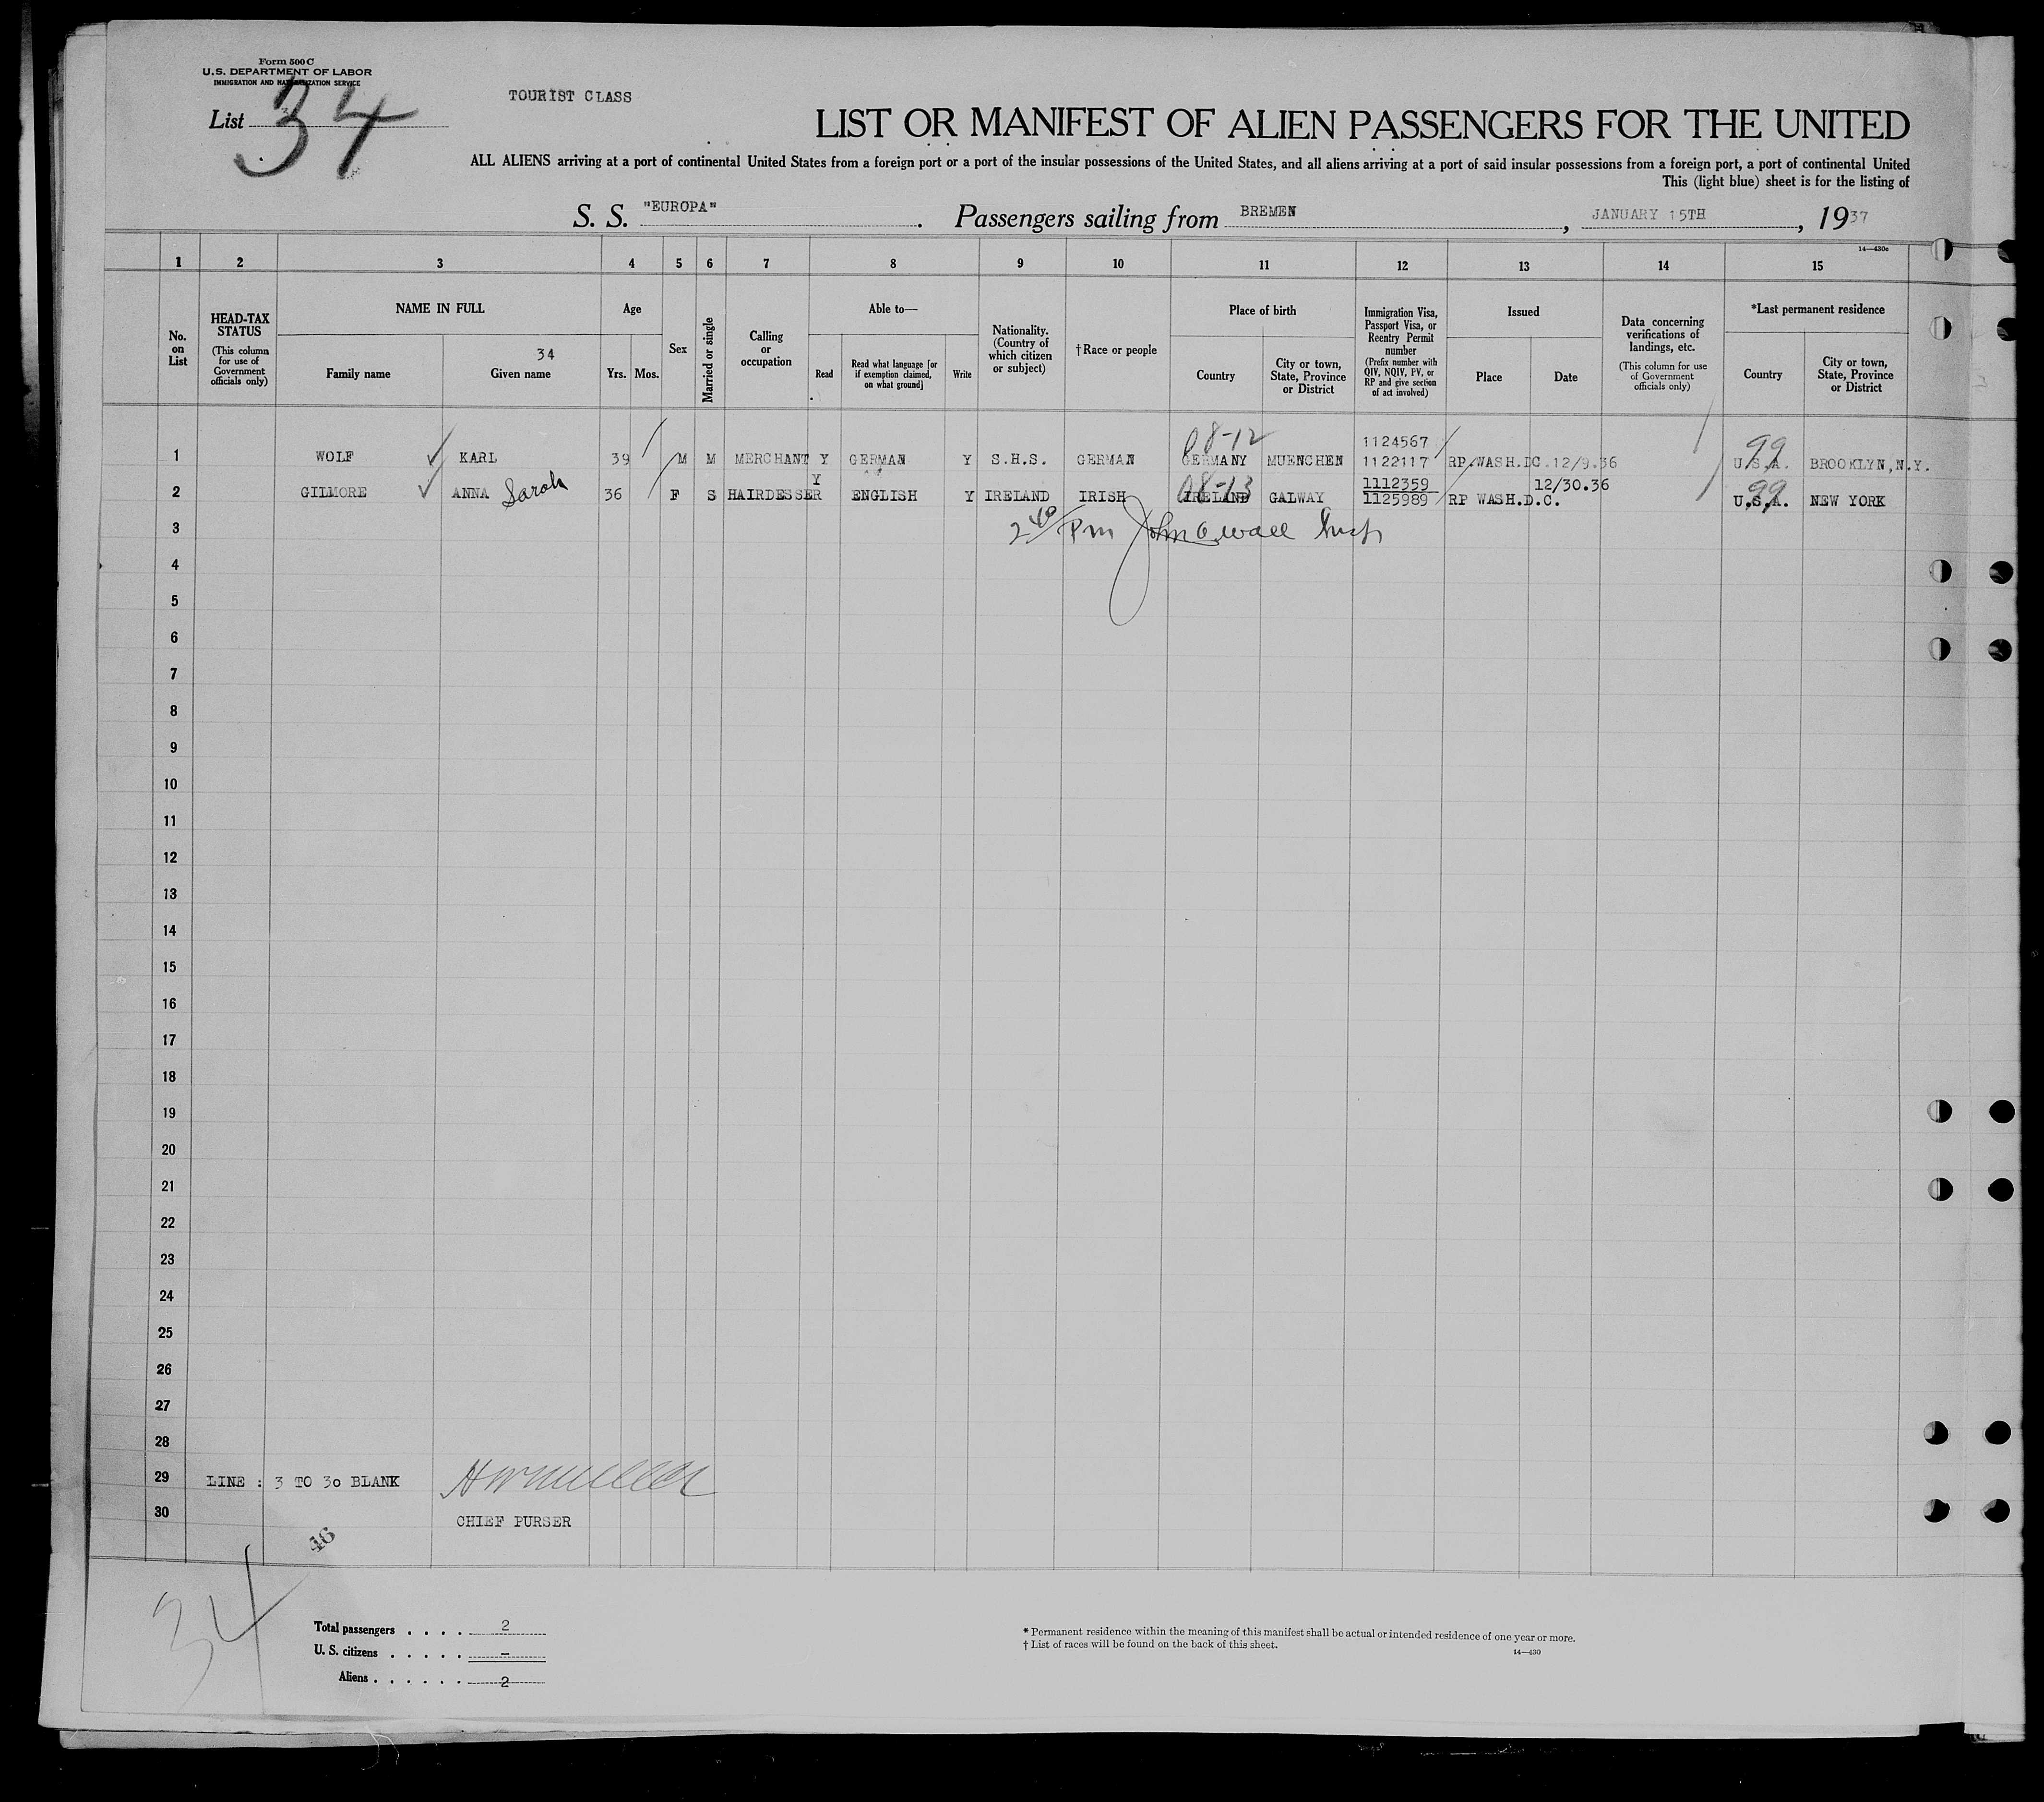 Form 500 C
U. S. DEPARTMENT OF LABOR
IMMIGRATION AND NATURALIZATION SERVICE
List 34
TOURIST CLASS
LIST OR MANIFEST OF ALIEN PASSENGERS FOR THE UNITED
ALL ALIENS arriving at a port of continental United States from a foreign port or a port of the insular possessions of the United States, and all aliens arriving at a port of said insular possessions from a foreign port, a port of continental United
This (light blue) sheet is for the listing of
S. S. "EUROPA". Passengers sailing from BREMEN, JANUARY 15TH, 1937
14—430c
1 2 3 4 5 6 7 8 9 10 11 12 13 14 15
No. on List
HEAD-TAX STATUS (This column for use of Government officials only)
NAME IN FULL
34
Family name Given name
Age
Yrs. Mos.
Sex
Married or single
Calling or occupation
Able to—
Read Read what language [or if exemption claimed, on what ground] Write
Nationality. (Country of which citizen or subject)
† Race or people
Place of birth
Country City or town, State, Province or District
Immigration Visa, Passport Visa, or Reentry Permit number (Prefix number with QIV, NQIV, PV, or RP and give section of act involved)
Issued
Place Date
Data concerning verifications of landings, etc. (This column for use of Government officials only)
*Last permanent residence
Country City or town, State, Province or District
08-12 1124567 99
1 WOLF KARL 39 M M MERCHANT Y GERMAN Y S.H.S. GERMAN GERMANY MUENCHEN 1122117 RP WASH.DC.12/9.36 U.S.A. BROOKLYN,N.Y.
Y 08-13 1112359 12/30.36 99
2 GILMORE ANNA Sarah 36 F S HAIRDESSER ENGLISH Y IRELAND IRISH IRELAND GALWAY 1125989 RP WASH.D.C. U.S.A. NEW YORK
3 2 40/Pm John Wall Insp
4
5
6
7
8
9
10
11
12
13
14
15
16
17
18
19
20
21
22
23
24
25
26
27
28
29 LINE : 3 TO 30 BLANK
30 CHIEF PURSER
46
34
Total passengers . . . . 2
U. S. citizens . . . . . —
Aliens . . . . . . 2
* Permanent residence within the meaning of this manifest shall be actual or intended residence of one year or more.
† List of races will be found on the back of this sheet.
14—430